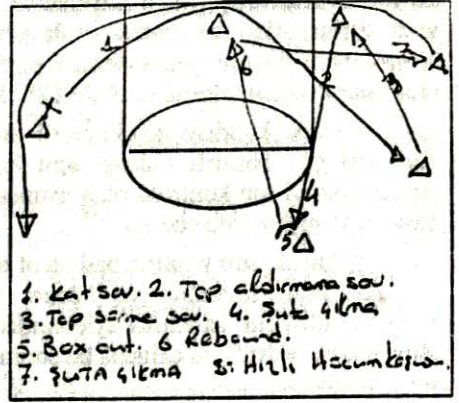 1
2
3
4
5
6
7
1. Kat sav. 2. Top aldırmama sav.
3. Top sürme sav. 4. Şuta çıkma
5 Box out. 6 Rebound.
7. ŞUTA ÇIKMA 8: Hızlı Hücum